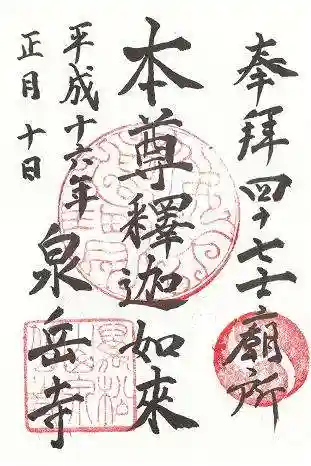 奉拝 四十七士廟所
本尊釋迦如來
平成十六年
正月十日
泉岳寺
萬松山